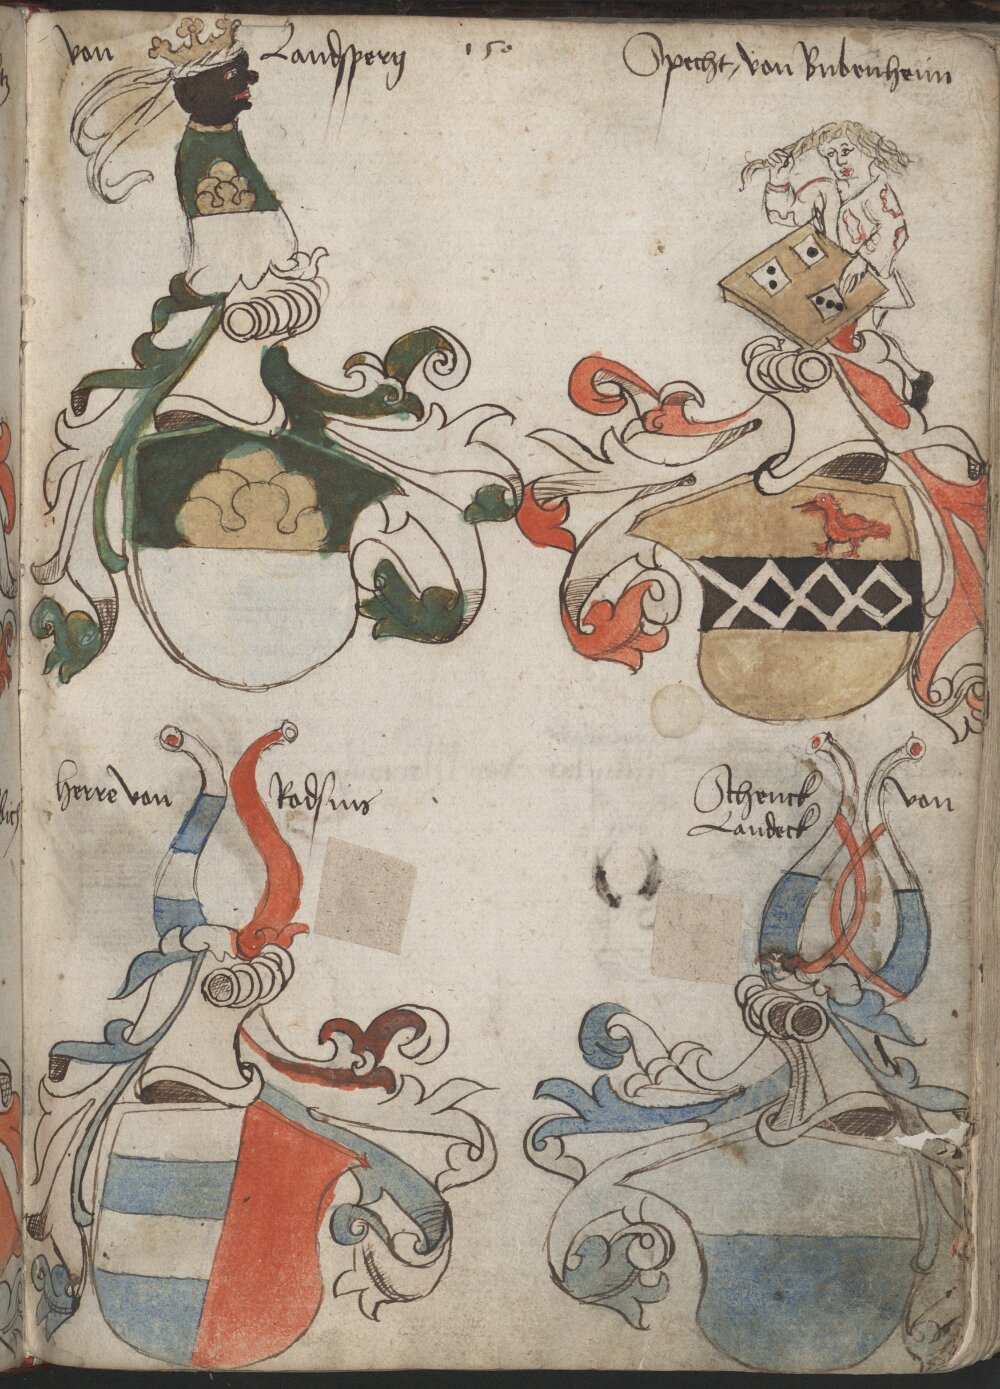 von Landsperg 150
Specht von Bubenheim
Herre von
Schenck von
Landeck